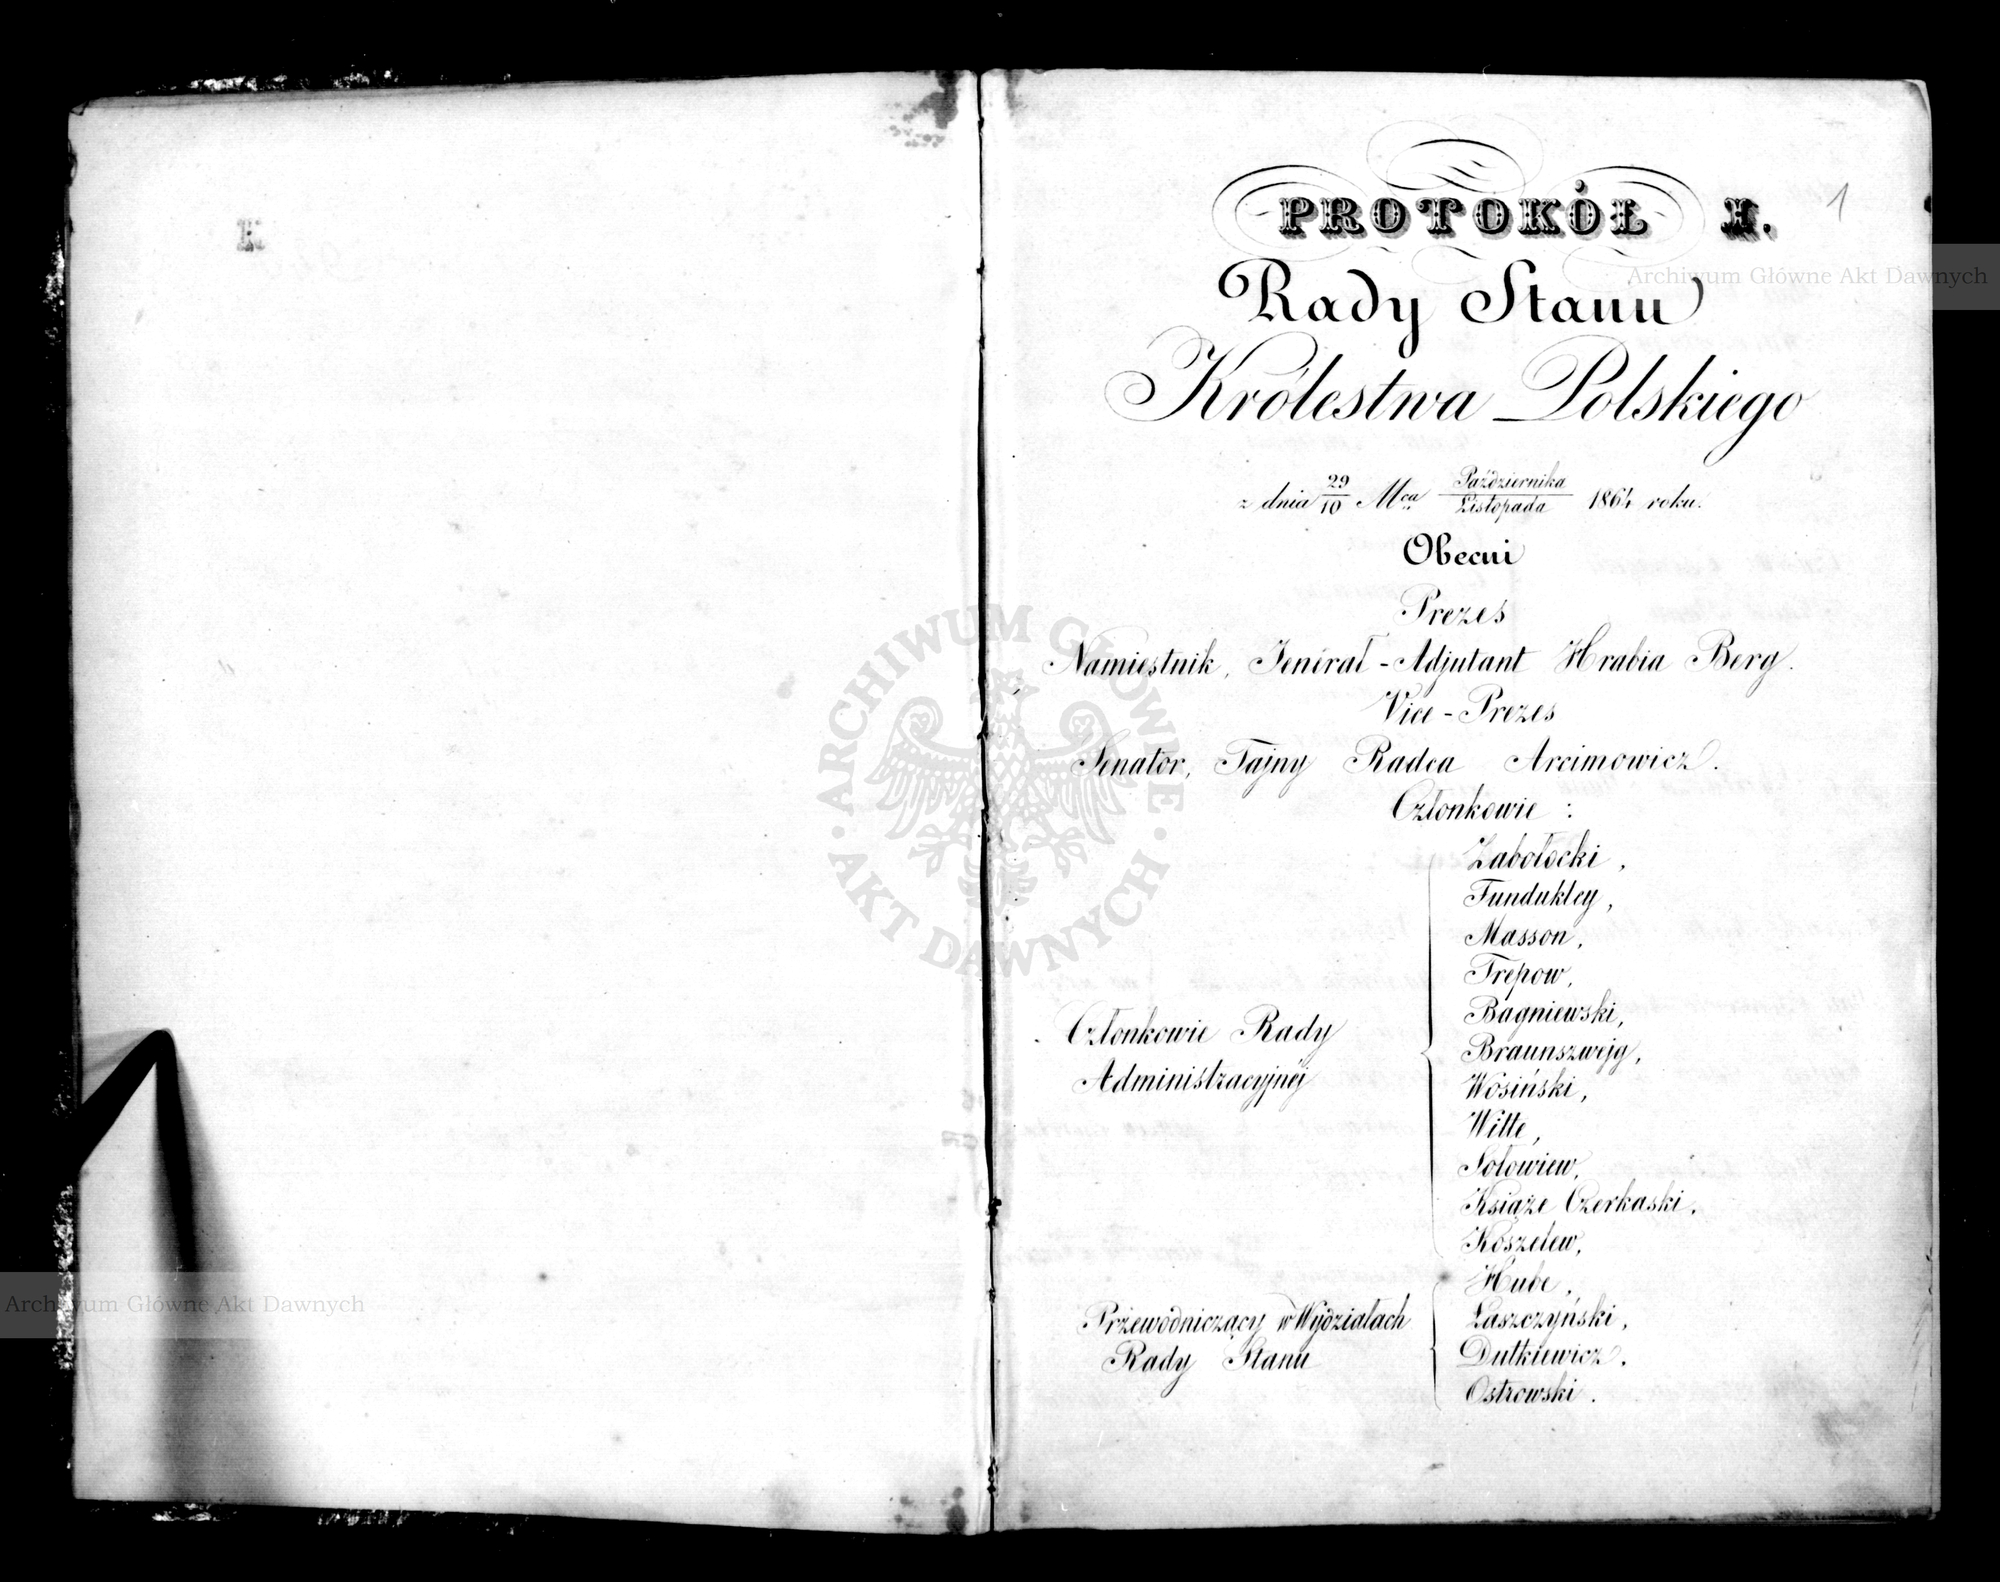 1
PROTOKÓŁ I.
Rady Stanu
Królestwa Polskiego
z dnia 29/10 Mca Października/Listopada 1864 roku.
Obecni
Prezes
Namiestnik, Jenerał-Adjutant Hrabia Berg.
Vice-Prezes
Senator, Tajny Radca Arcimowicz.
Członkowie:
Członkowie Rady
Administracyjnéj
Zabołocki,
Fundukley,
Masson,
Trepow,
Bagniewski,
Braunszwejg,
Wosiński,
Witte,
Sołowiew,
Książe Czerkaski,
Koszelew,
Przewodniczący w Wydziałach
Rady Stanu
Hube,
Łaszczyński,
Dutkiewicz,
Ostrowski.
Archiwum Główne Akt Dawnych
ARCHIWUM GŁÓWNE
AKT DAWNYCH
Archiwum Główne Akt Dawnych